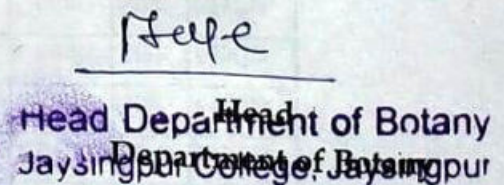 Head Department of Botany
Head
Jaysingpur College, Jaysingpur
Department of Botany